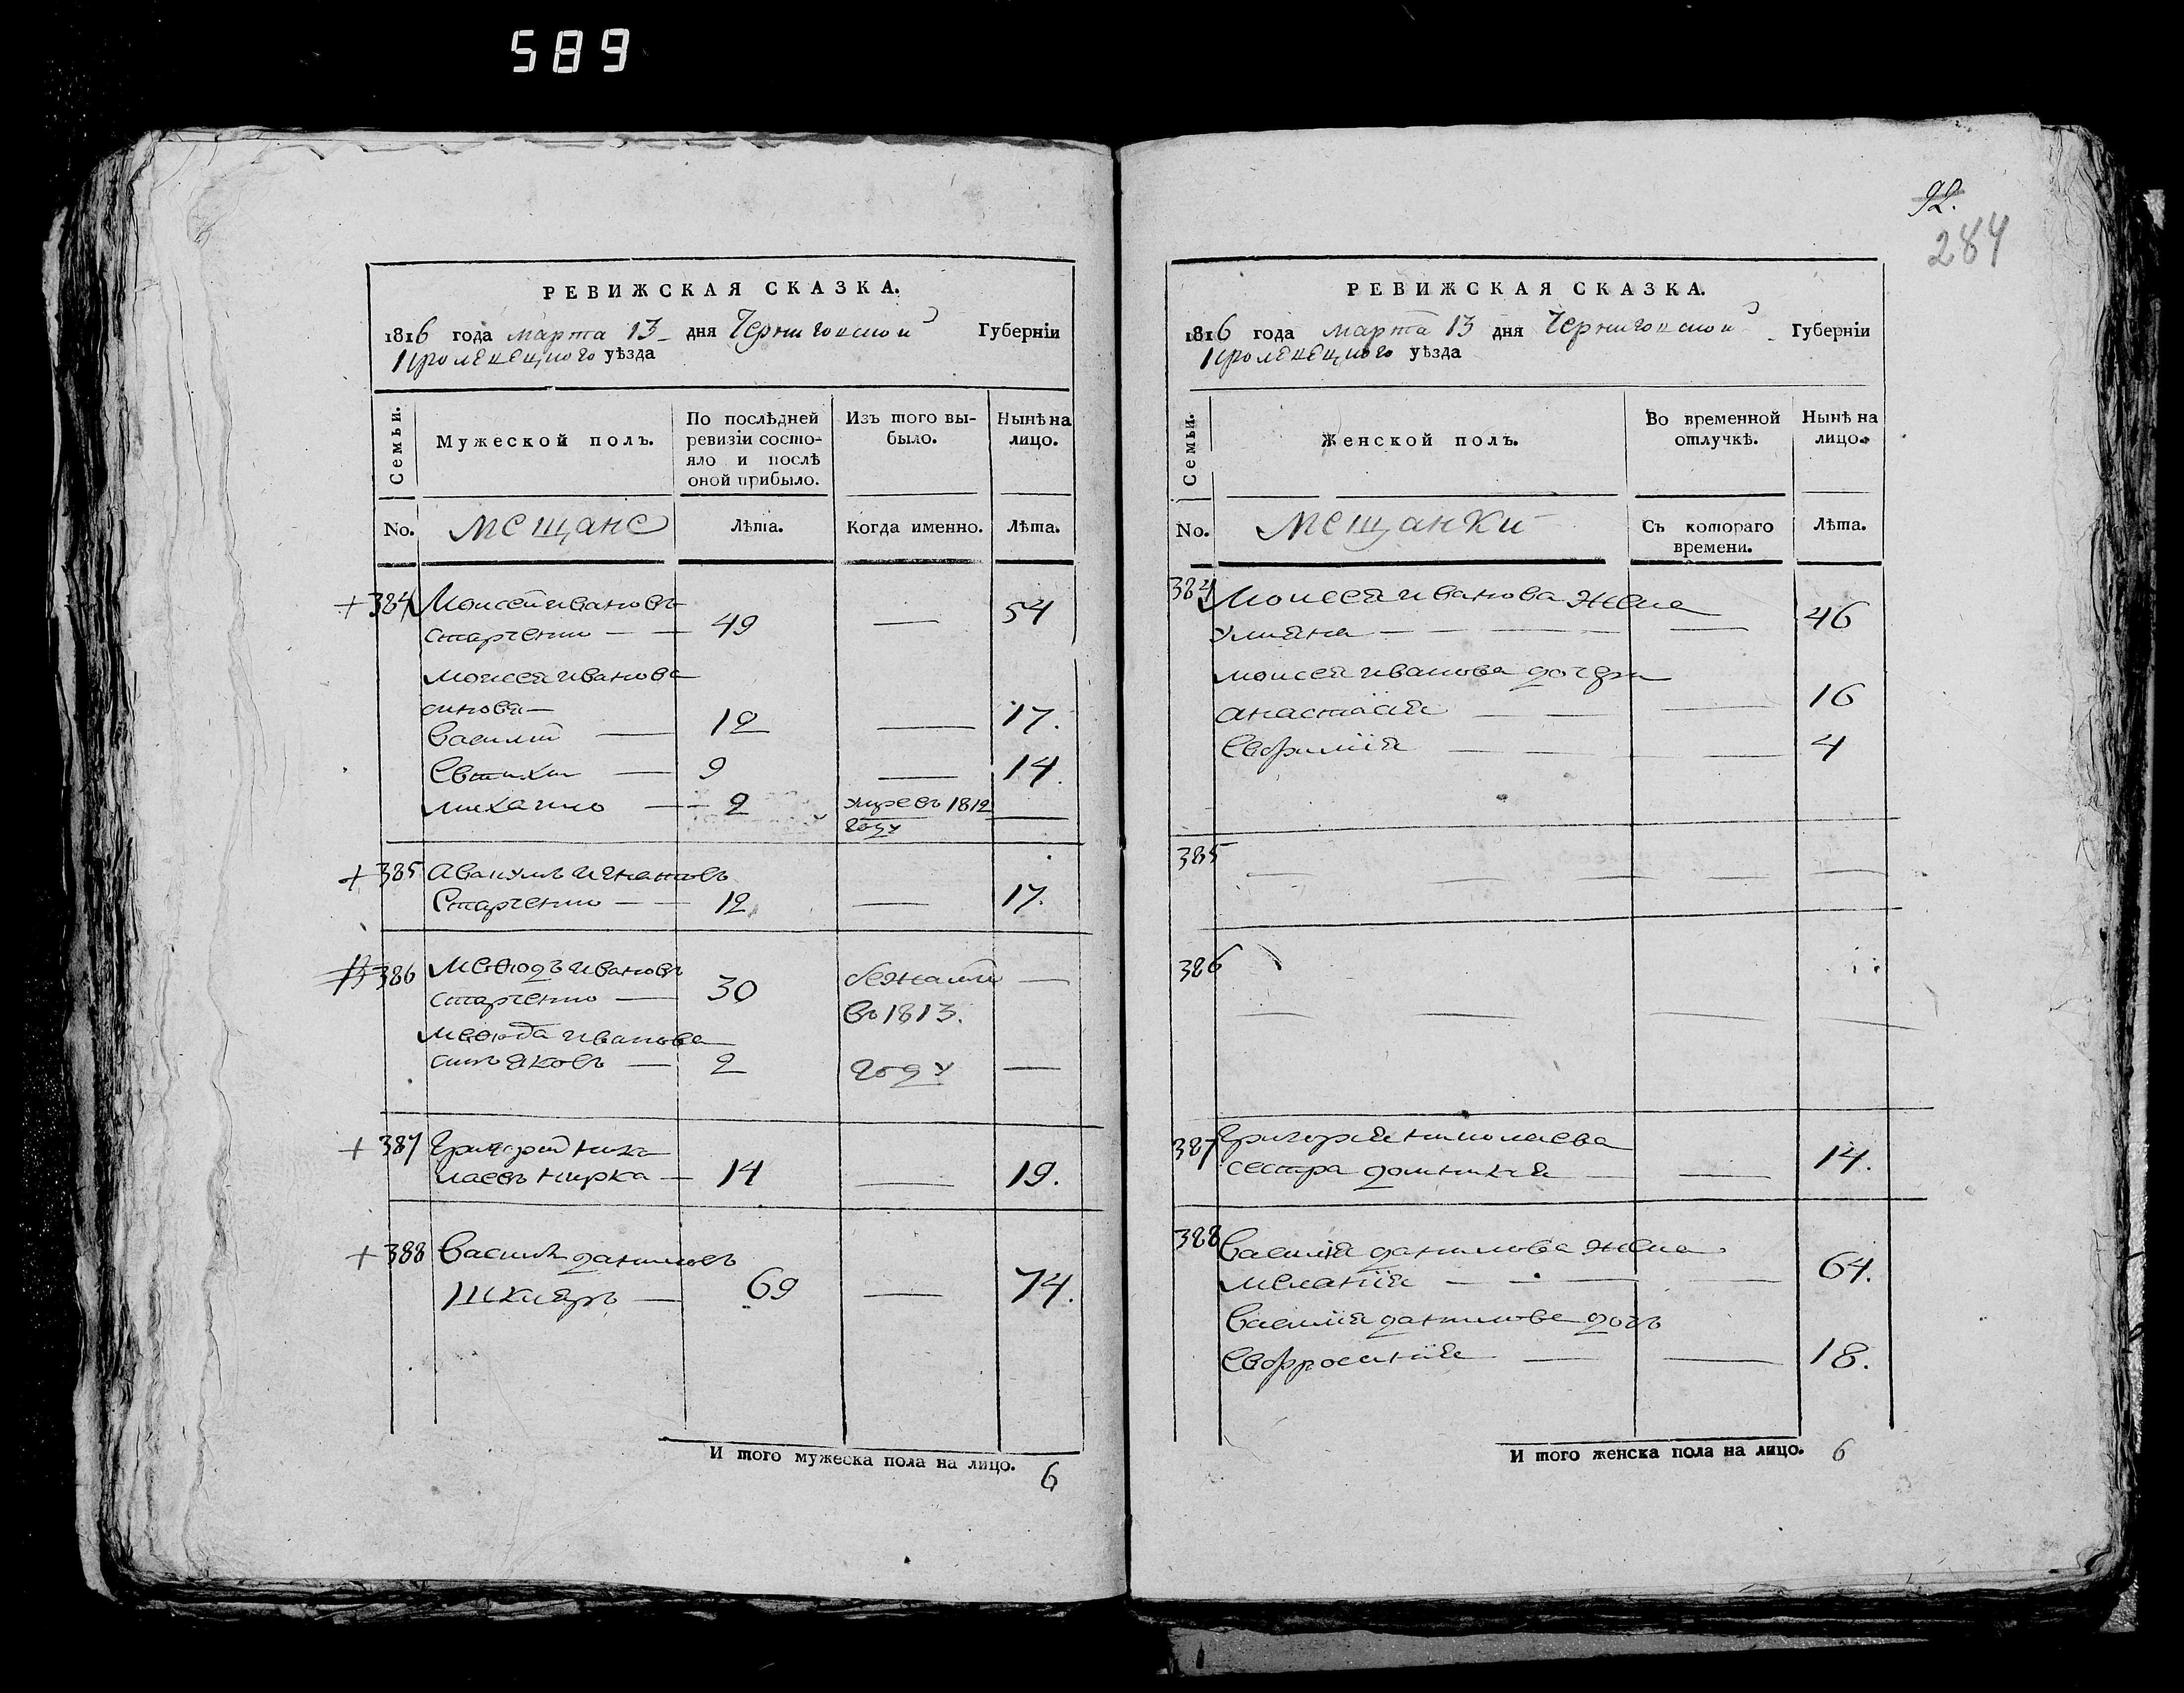 589
РЕВИЖСКАЯ СКАЗКА.
1816 года марта 13 дня Черниговской Губерніи
Кролевецкого уѣзда
Семьи.
Мужеской полъ.
По послѣдней ревизіи состо-
яло и послѣ
оной прибыло.
Изъ того вы-
было.
Нынѣ на
лицо.
No.
мещане
Лѣта.
Когда именно.
Лѣта.
+ 384 Моисей Ивановъ
Старченко — — 49 — 54
Моисея Иванова
синовя —
Василий — 12 — 17.
Евтихи — 9 — 14.
Михаило — 2 умре въ 1812 —
году
+ 385 Авакумъ Игнатовъ
Старченко — — 12 — 17.
386 Меѳодъ Ивановъ
Старченко — 30 бежали —
въ 1813.
Меѳода Иванова
синъ Яковъ — 2 году —
+ 387 Григорий Нико
лаевъ Кирка — 14 — 19.
+ 388 Василий Даниловъ
Шкляръ — 69 — 74.
И того мужеска пола на лицо. 6
92.
284
РЕВИЖСКАЯ СКАЗКА.
1816 года марта 13 дня Черниговской Губерніи
Кролевецкого уѣзда
Семьи.
Женской полъ.
Во временной
отлучкѣ.
Нынѣ на
лицо.
No.
мещанки
Съ котораго
времени.
Лѣта.
384 Моисея Иванова жена
Улияна — — — — — 46
Моисея Иванова дочери
Анастасия — — — 16
Евфимия — — — 4
385 — — — — —
386
— — — —
387 Григория Николаева
сестра Доминикия — — 14.
388 Василия Данилова жена
Мелания — — — — 64.
Василия Данилова дочъ
Евфросиния — — 18.
И того женска пола на лицо. 6